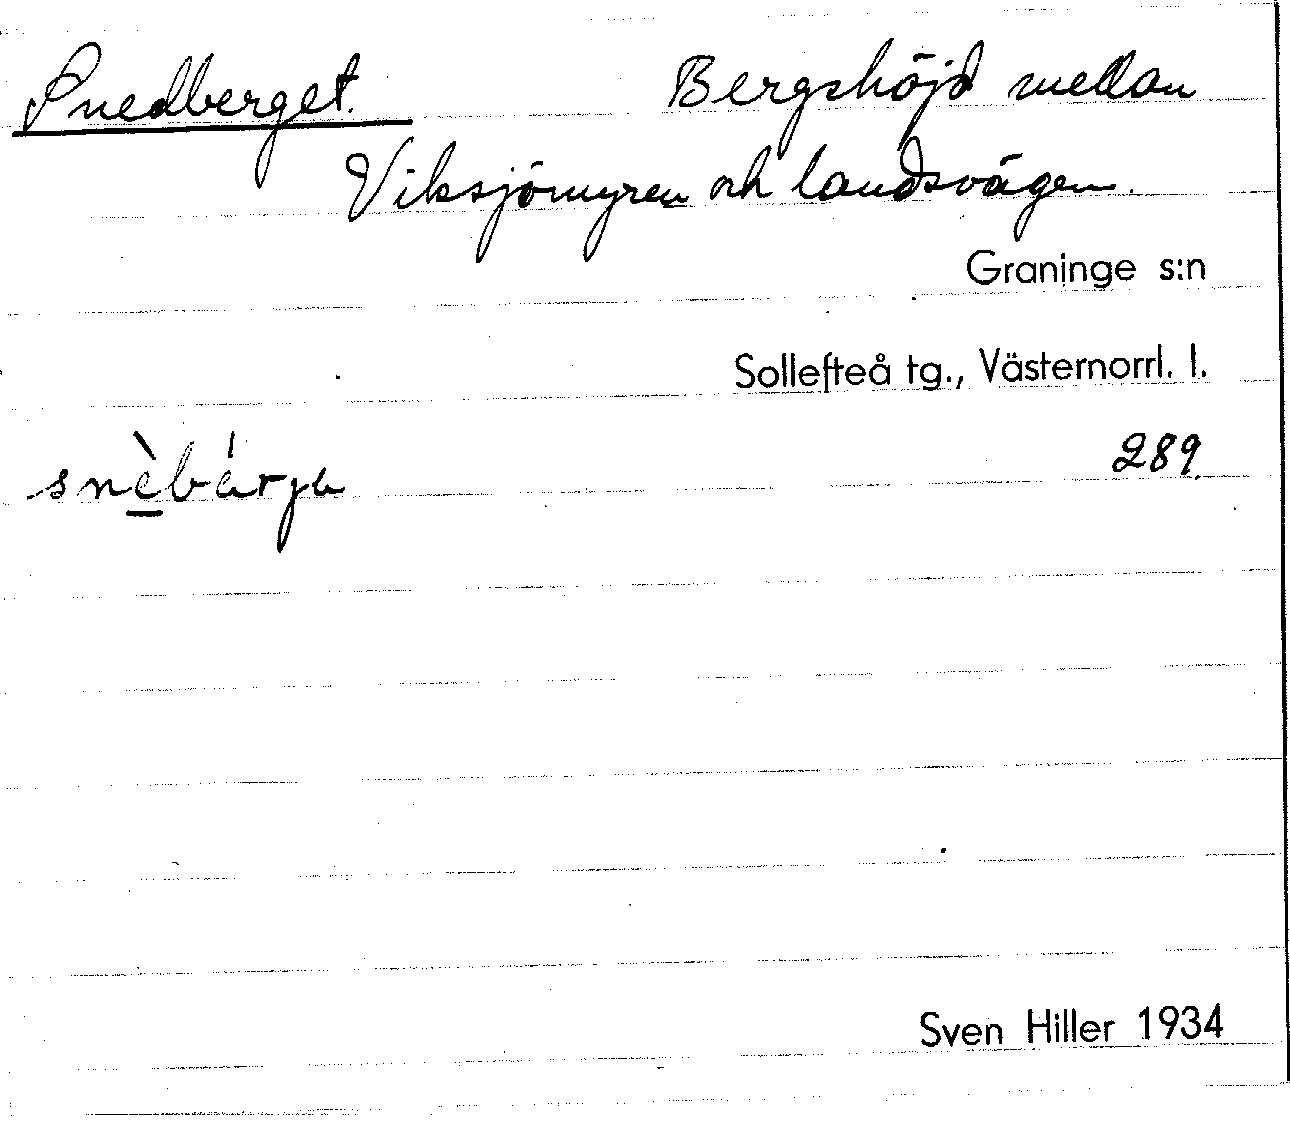 Snedberget. Bergshöjd mellan
Viksjömyren och landsvägen.
Graninge s:n
Sollefteå tg., Västernorrl. l.
289.
Sven Hiller 1934